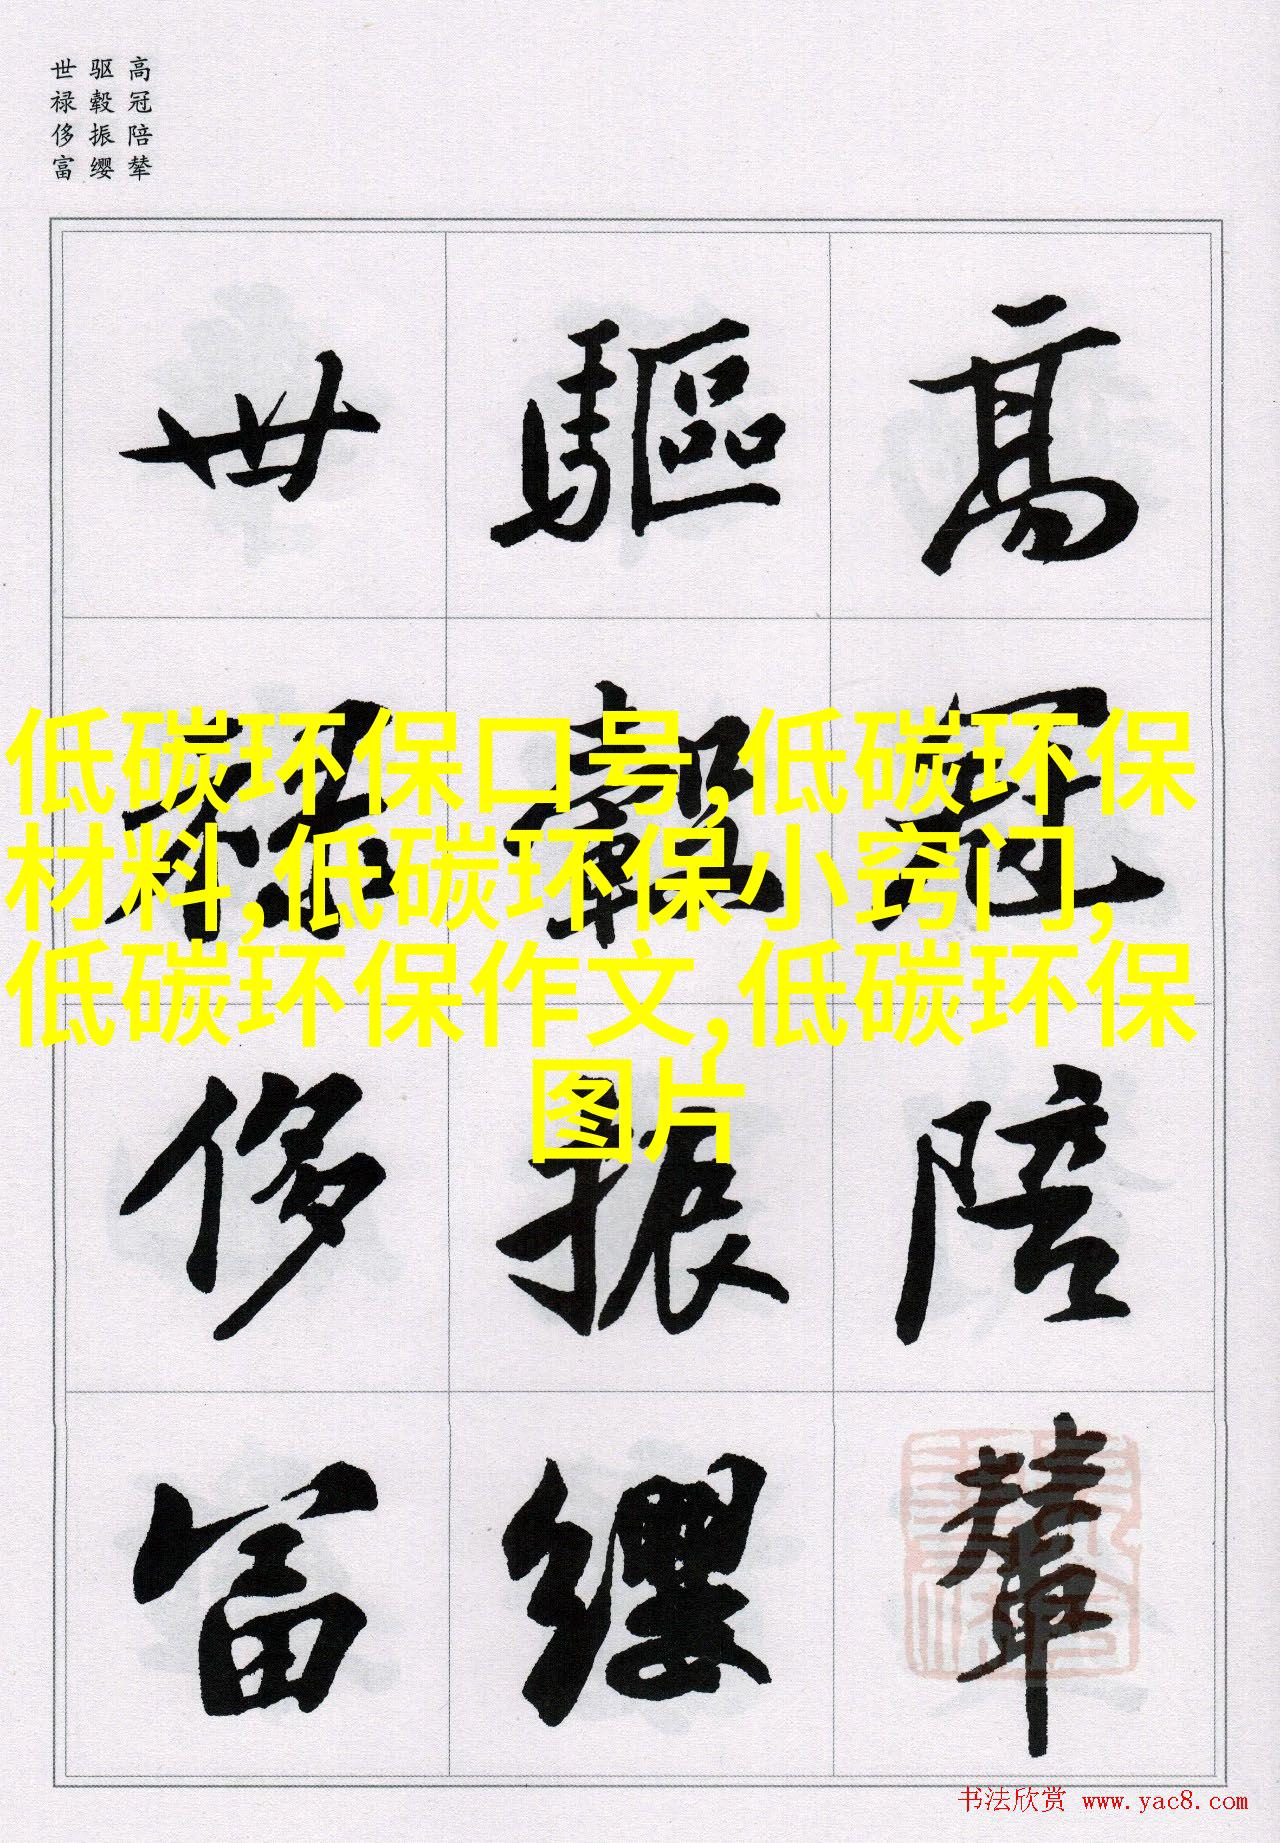 高冠陪辇
驱毂振缨
世禄侈富
高冠陪輦
驅轂振纓
世禄侈富
低碳环保口号,低碳环保
材料,低碳环保小窍门,
低碳环保作文,低碳环保
图片
书法欣赏 www.yac8.com